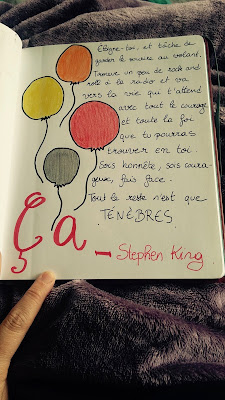 Éloigne-toi, et tâche de
garder le sourire au volant.
Trouve un peu de rock and
roll à la radio et va
vers la vie qui t'attend
avec tout le courage
et toute la foi
que tu pourras
trouver en toi.
Sois honnête, sois coura
geux, fais face.
Tout le reste n'est que
TÉNÈBRES
Ça
— Stephen King